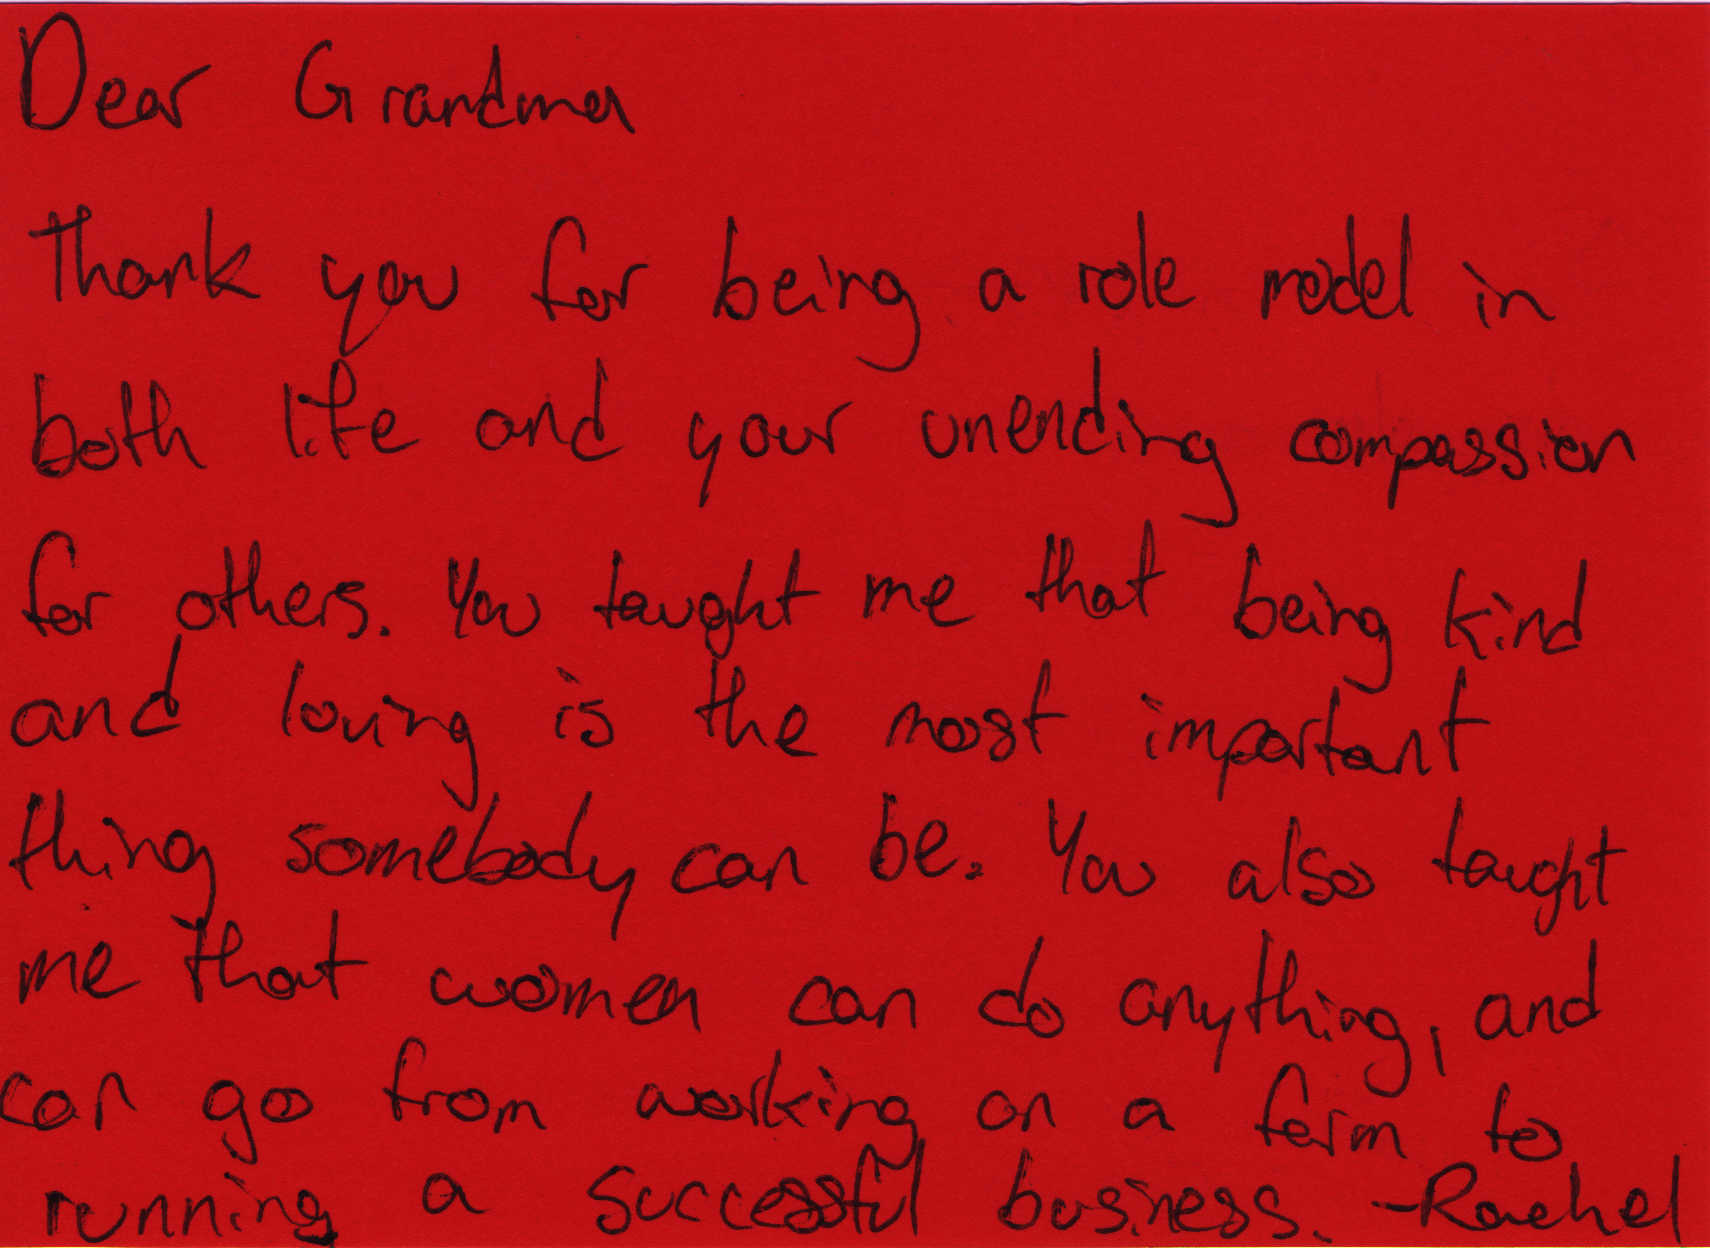 Dear Grandma
Thank you for being a role model in
both life and your unending compassion
for others. You taught me that being kind
and loving is the most important
thing somebody can be. You also taught
me that women can do anything, and
can go from working on a farm to
running a successful business. -Rachel